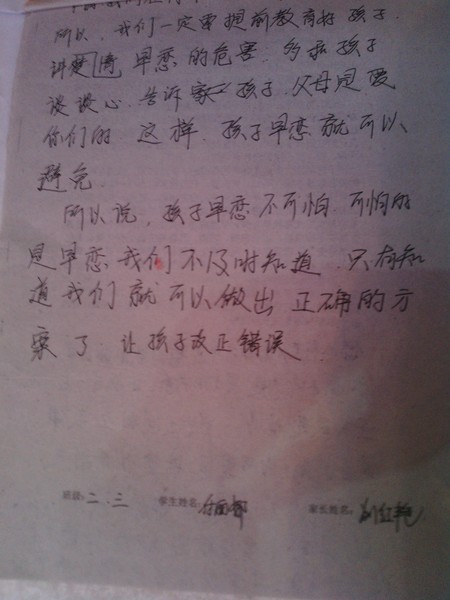 所以,我们一定要提前教育好孩子.
讲楚 清 早恋的危害.多和孩子
谈谈心.告诉 孩子.父母是爱
你们的.这样.孩子早恋就可以
避免
所以说,孩子早恋不可怕.可怕的
是早恋我们不及时知道.只有知
道我们就可以做出正确的方
案了.让孩子改正错误
班级:二.三 学生姓名: 家长姓名: